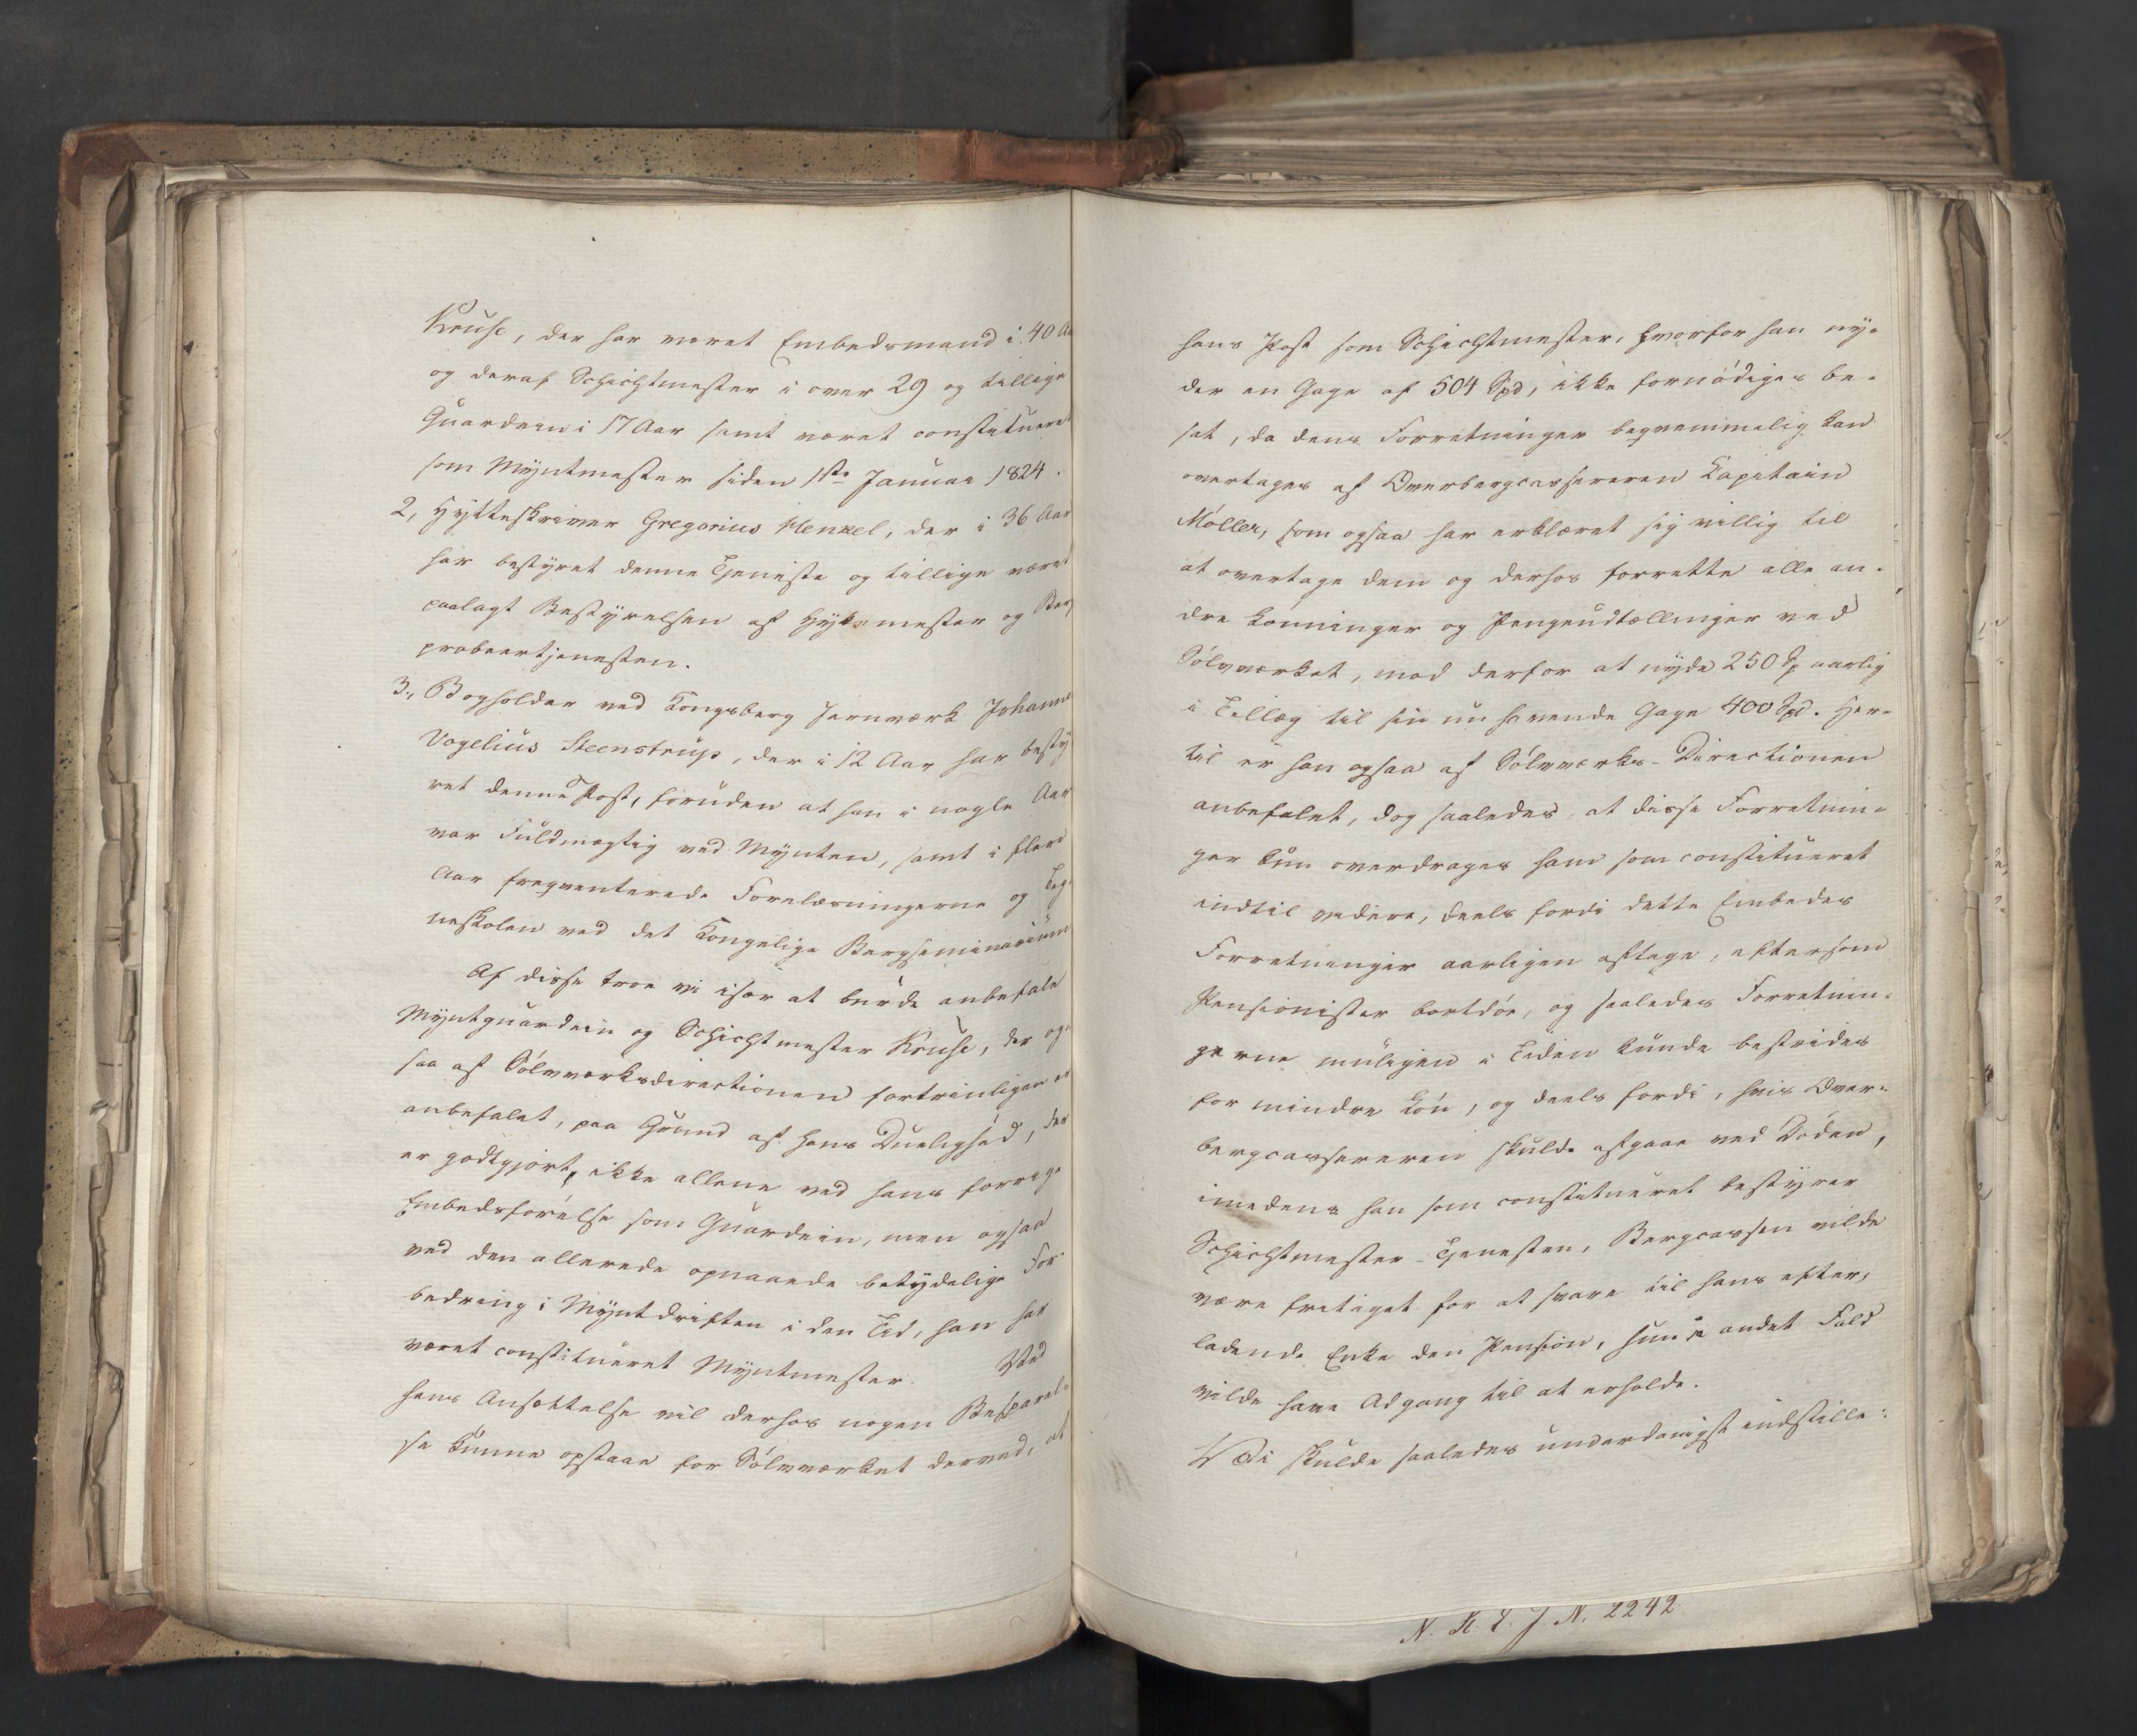 Kruse, der har været Embedsmand i 40 Aar
og deraf Schichtmester i over 29 og tillige
Guardein i 17 Aar samt været constitueret
som Myntmester siden 1ste Januar 1824.
2, Hytteskriver Gregorius Henkel, der i 36 Aar
har bestyret denne Tjeniste og tillige været
paalagt Bestyrelsen af Hyttemester og Berg
probeertjenesten.
3, Bogholder ved Kongsberg Jernværk Johannes
Vogelius Steenstrup, der i 12 Aar har besty
ret denne Post, foruden at han i nogle Aar
var Fuldmægtig ved Mynten, samt i flere
Aar freqventerede Forelæsningerne og Teg-
neskolen ved det Kongelige Bergseminarium
Af disse troe vi især at burde anbefale
Myntguardein og Schichtmester Kruse, der og-
saa af Sølvværksdirectionen fortrinligen er
anbefalet, paa Grund af hans Duelighed, der
er godtgjort, ikke allene ved hans forrige
Embedsførelse som Guardein, men ogsaa
ved den allerede opnaaede betydelige For-
bedring i Myntdriften i den Tid, han har
været constitueret Myntmester. Ved
hans Ansættelse vil derhos nogen Besparel-
se kunne opstaae for Sølvværket derved, at
hans Post som Schichtmester, hvorfor han ny-
der en Gage af 504 Spd, ikke fornødiges be-
sat, da dens Forretninger beqvemmelig kan
overtages af Overbergcassereren Capitain
Møller, som ogsaa har erklæret sig villig til
at overtage dem og derhos forrette alle an-
dre Lønninger og Pengeudtællinger ved
Sølvværket, mod derfor at nyde 250 Sp aarlig
i Tillæg til sin nu havende Gage 400 Spd. Her-
til er han ogsaa af Sølvværks-Directionen
anbefalet, dog saaledes, at disse Forretnin-
ger kun overdrages ham som constitueret
indtil videre, deels fordi dette Embedes
Forretninger aarligen aftage, eftersom
Pensionister bortdøe, og saaledes Forretnin-
gerne muligen i Tiden kunde bestrides
for mindre Løn, og deels fordi, hvis Over-
bergcassereren skulde afgaae ved Døden,
imedens han som constitueret bestyrer
Schichtmester-Tjenesten, Bergcassen vilde
være fritaget for at svare til hans efter-
ladende Enke den Pension, hun i andet Fald
vilde have Adgang til at erholde.
Vi skulde saaledes underdanigst indstille:
N. R. J. N. 2242